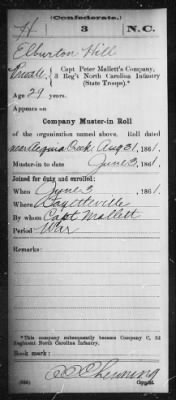 (Confederate.)
H 3 N.C.
Elburton Hill
Private, Capt Peter Mallett's Company,
3 Reg't North Carolina Infantry
(State Troops).*
Age 29 years.
Appears on
Company Muster-in Roll
of the organization named above. Roll dated
near Acquia Creek, Aug 31, 1861.
Muster-in to date June 3, 1861.
Joined for duty and enrolled:
When June 3, 1861.
Where Fayetteville
By whom Capt Mallett
Period War
Remarks:
*This company subsequently became Company C, 3d
Regiment North Carolina Infantry.
Book mark:
Copyist.